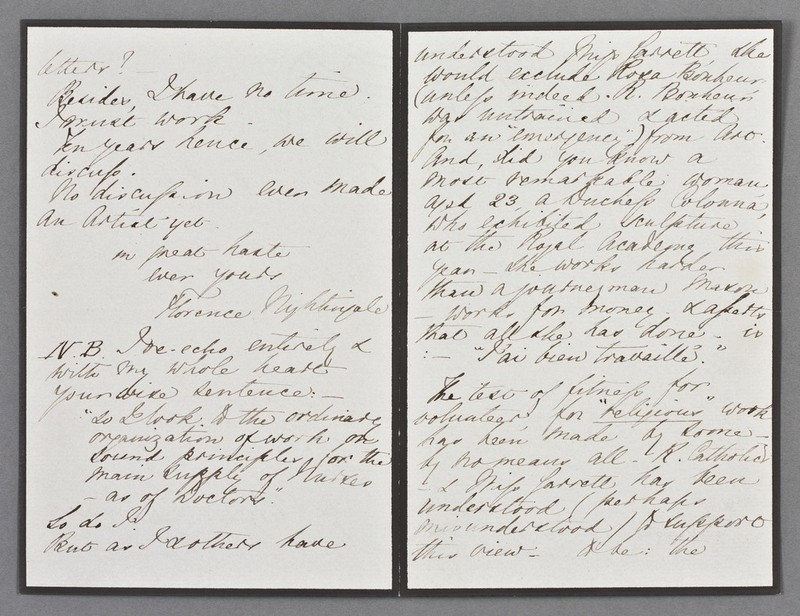 letters? —
Besides, I have no time.
I must work —
Ten years hence, we will
discuss.
No discussion ever made
an Artist yet.
in great haste
ever yours
Florence Nightingale
N.B. I re-echo entirely &
with my whole heart
your wise sentence: —
"So I look to the ordinary
organization of work on
sound principles for the
main supply of Nurses
— as of Doctors".
So do I.
But as I & others have
understood Miss Garrett, she
would exclude Rosa Bonheur
(unless indeed R. Bonheur
was untrained & acted
for an "emergency") from Art.
And, did you know a
most remarkable woman
aged 23, a Duchess Colonna,
who exhibited sculpture
at the Royal Academy this
year — she works harder
than a journeyman Mason
— works for money & asserts
that all she has done — is
: — "J'ai bien travaillé."
The test of fitness for
volunteers for "religious" work
has been made by some —
by no means all — R. Catholics
— & Miss Garrett has been
understood (perhaps
misunderstood) to support
this view — & be: the